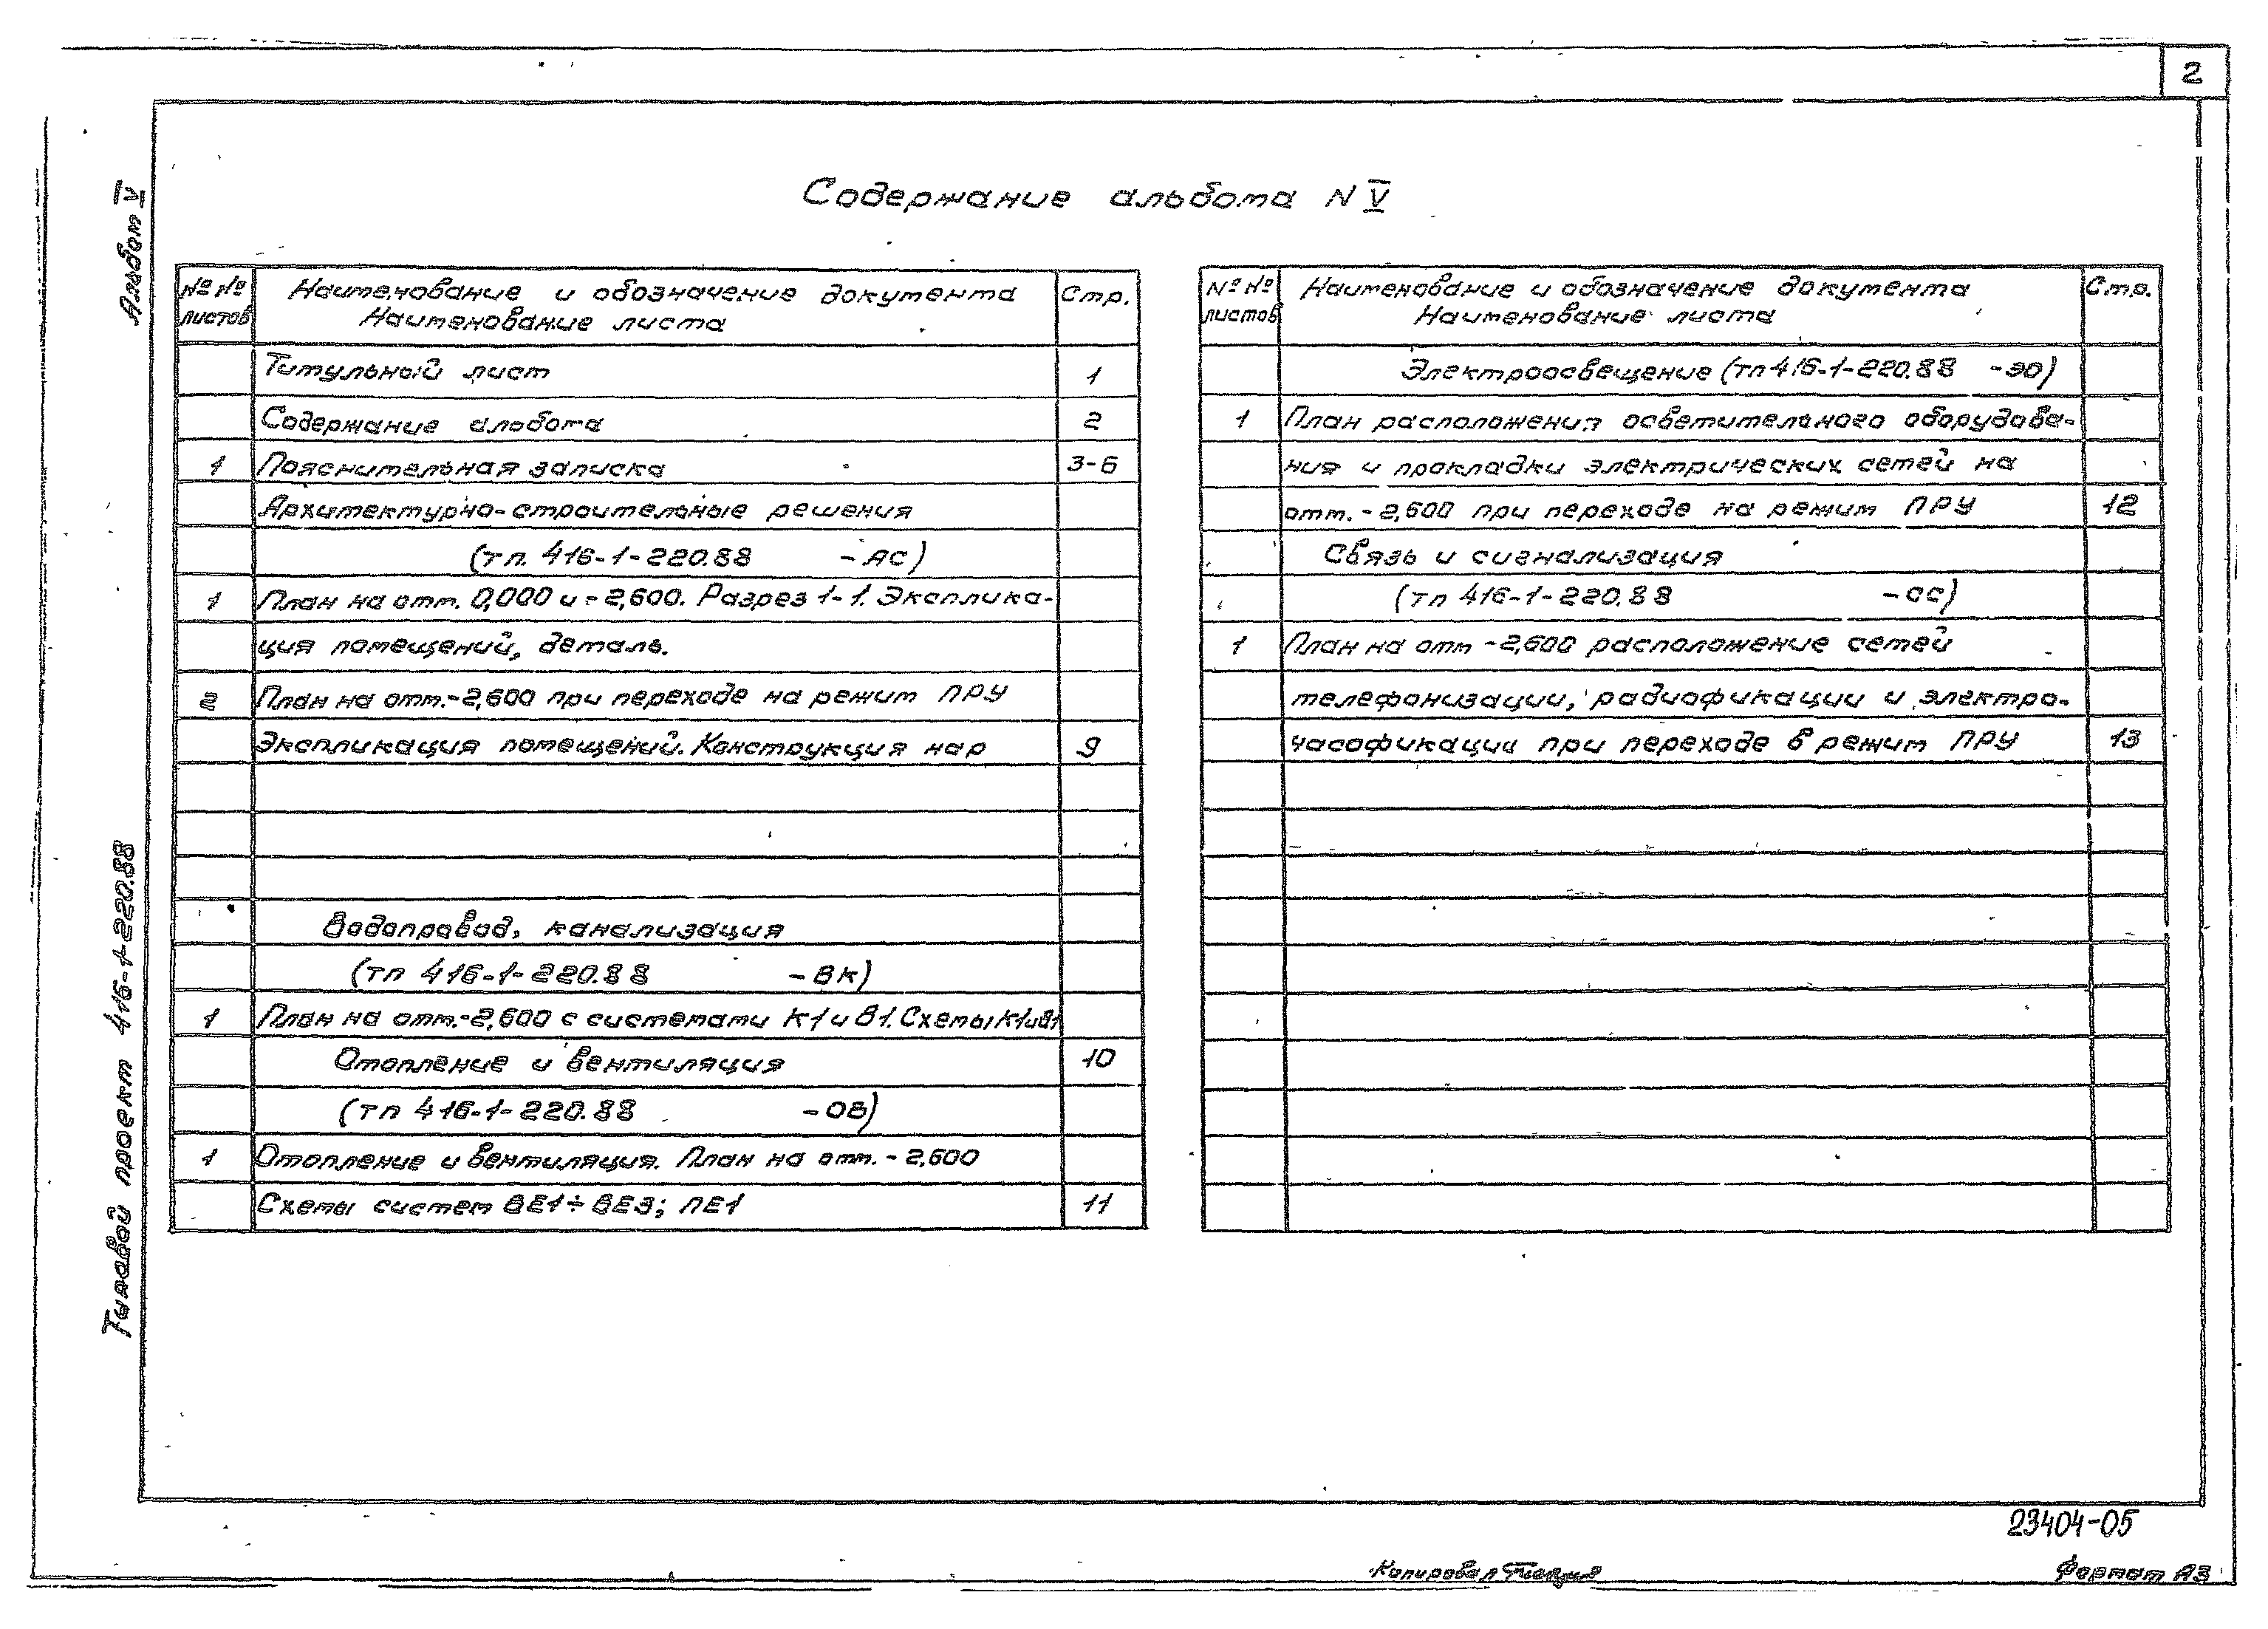 2
Альбом V
Типовой проект 416-1-220.88
Содержание альбома N V
№ № Наименование и обозначение документа Стр.
листов Наименование листа
Титульный лист 1
Содержание альбома 2
1 Пояснительная записка 3-6
Архитектурно-строительные решения
(тп. 416-1-220.88 -АС)
1 План на отм. 0,000 и -2,600. Разрез 1-1. Эксплика-
ция помещений, деталь.
2 План на отм.-2,600 при переходе на режим ПРУ
Экспликация помещений. Конструкция нар 9
Водопровод, канализация
(тп 416-1-220.88 -ВК)
1 План на отм.-2,600 с системами К1 и В1. Схемы К1 и В1
Отопление и вентиляция 10
(тп 416-1-220.88 -ОВ)
1 Отопление и вентиляция. План на отм. -2,600
Схемы систем ВЕ1÷ВЕ3; ПЕ1 11
№ № Наименование и обозначение документа Стр.
листов Наименование листа
Электроосвещение (тп 416-1-220.88 -ЭО)
1 План расположения осветительного оборудова-
ния и прокладки электрических сетей на
отм. -2,600 при переходе на режим ПРУ 12
Связь и сигнализация
(тп 416-1-220.88 -СС)
1 План на отм -2,600 расположение сетей
телефонизации, радиофикации и электро-
часофикации при переходе в режим ПРУ 13
23404-05
Копировал
Формат А3